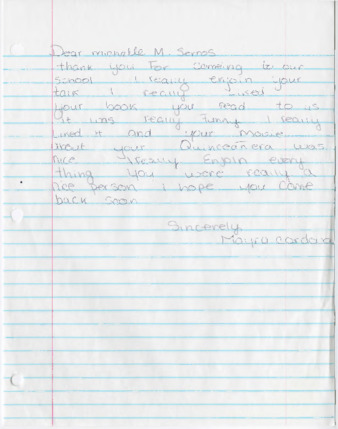 Dear michelle M. Serros
thank you For comeing to our
school I really enjoin your
talk I really Liked
your book you read to us
it was really funny I really
Liked it and your movie
about your Quinceañera was
nice I really Enjoin every
thing You were really a
nice person i hope you come
back soon
Sincerely
Mayra Cardona